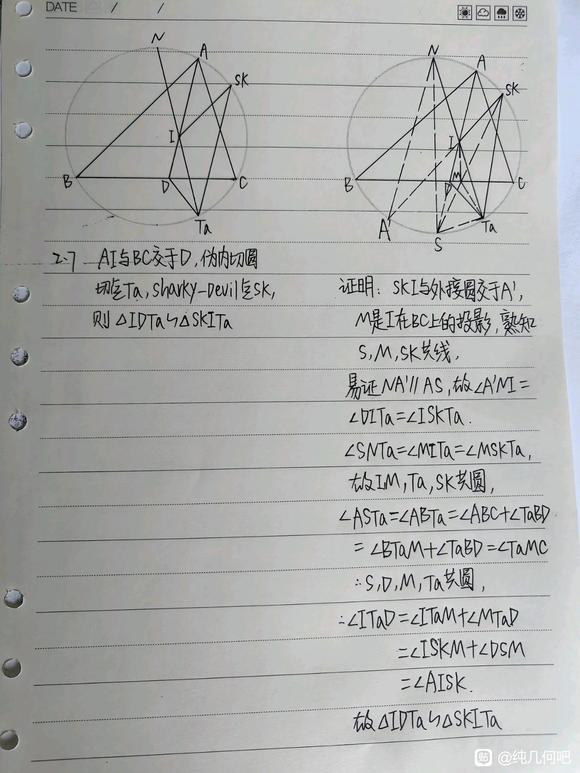 DATE / /
N
A
SK
I
B
D
C
Ta
N
A
SK
I
B
D
M
C
A
S
Ta
2.7 AI与BC交于D,伪内切圆
切点Ta, Sharky-Devil点SK,
则△IDTa∽△SKITa
证明: SKI与外接圆交于A',
M是I在BC上的投影,熟知
S,M,SK共线,
易证NA'//AS,故∠A'NI=
∠DITa=∠ISKTa.
∠SNTa=∠MITa=∠MSKTa,
故IM,Ta,SK共圆,
∠ASTa=∠ABTa=∠ABC+∠TaBD
=∠BTaM+∠TaBD=∠TaMC
∴S,D,M,Ta共圆,
∴∠ITaD=∠ITaM+∠MTaD
=∠ISKM+∠DSM
=∠AISK.
故△IDTa∽△SKITa
贴 @纯几何吧